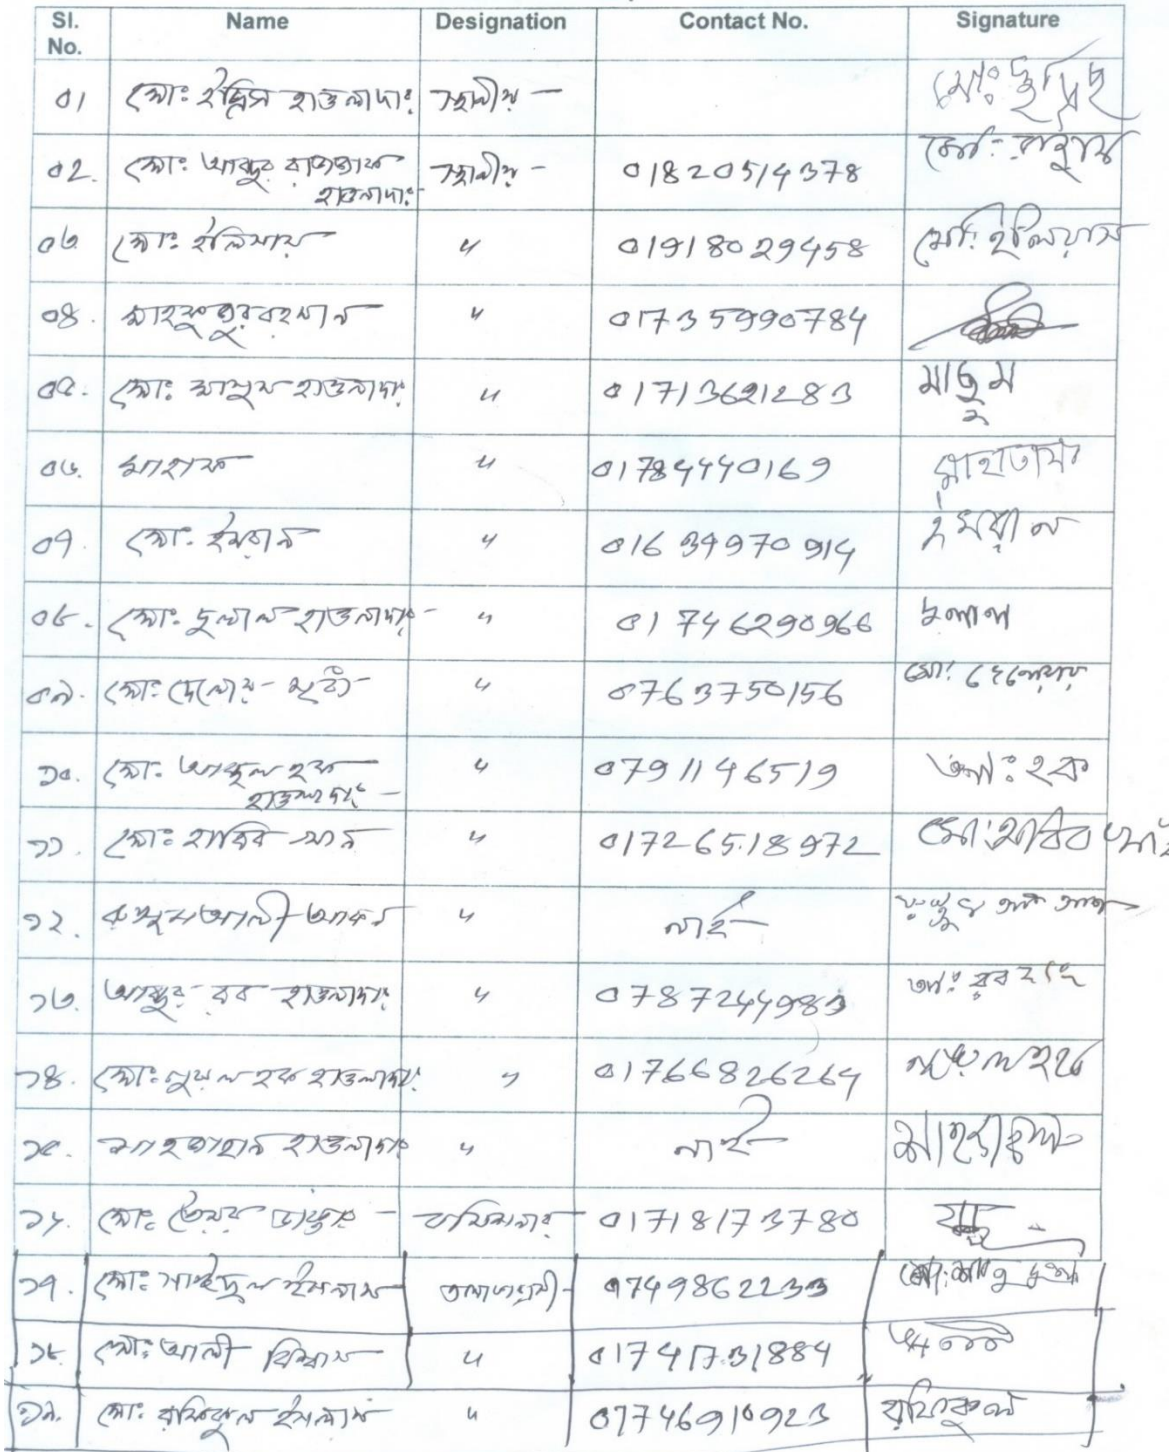 Sl. No. Name Designation Contact No. Signature
০১ মোঃ ইদ্রিস হাওলাদার স্থানীয় – মোঃ ইদ্রিছ
০২. মোঃ আব্দুর রাজ্জাক হাওলাদার স্থানীয় – 01820514378
০৩ মোঃ ইলিয়াস " 01918029458 মোঃ ইলিয়াস
০৪. মাহফুজুর রহমান " 01735990784
০৫. মোঃ মাসুম হাওলাদার " 01713621283 মাছুম
০৬. " 01784440169
০৭. মোঃ ইমরান " 01634970914 ইমরান
০৮. মোঃ দুলাল হাওলাদার " 01746290966 দুলাল
০৯. মোঃ দেলোয়ার " 0763750156 মোঃ দেলোয়ার
১০. মোঃ আব্দুল হক হাওলাদার " 0791146519 আঃ হক
১১. মোঃ হাবিব খান " 01726518972 মোঃ হাবিব খান
১২. আলী আকন " নাই
১৩. আব্দুর রব হাওলাদার " 0787244983 আঃ রব
১৪. মোঃ নুরুল হক হাওলাদার " 01766826264 নুরুল হক
১৫. শাহজাহান হাওলাদার " নাই
১৬. মোঃ তৈয়ব – 01718173780
১৭. মোঃ সাইদুল ইসলাম 0749862233
১৮. মোঃ আলী বিশ্বাস " 01741731884
১৯. মোঃ রফিকুল ইসলাম " 07746910923 রফিকুল